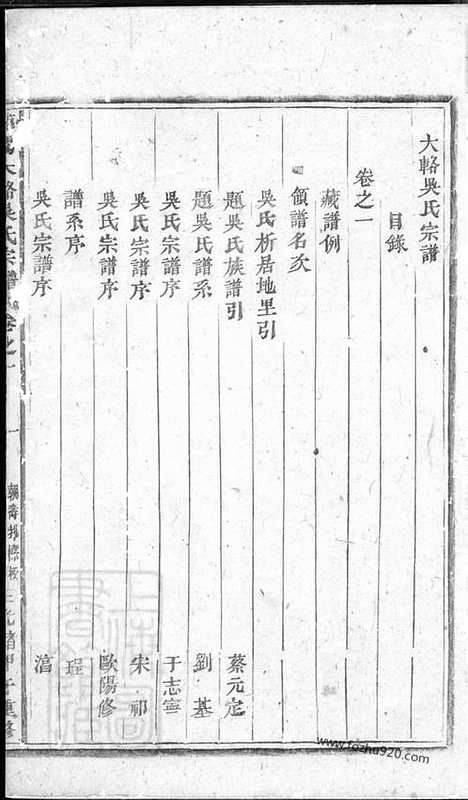 大輅吳氏宗譜
目錄
卷之一
藏譜例
領譜名次
吳氏析居地里引
題吳氏族譜引 蔡元定
題吳氏譜系 劉基
吳氏宗譜序 于志寧
吳氏宗譜序 宋祁
吳氏宗譜序 歐陽修
譜系序 珵
吳氏宗譜序 湻
大輅吳氏宗譜 卷之一 一
www.fozhu920.com